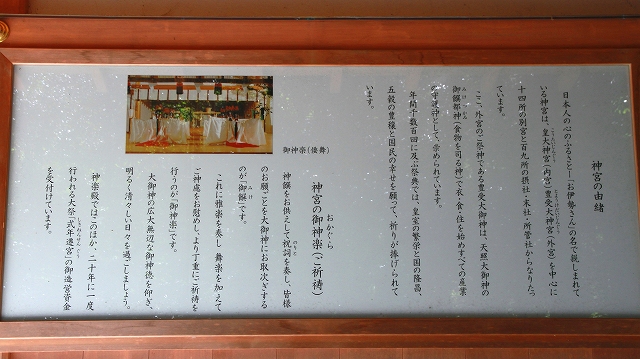 神宮の由緒
日本人の心のふるさと―「お伊勢さん」の名で親しまれて
いる神宮は、皇大神宮（内宮）豊受大神宮（外宮）を中心に
十四所の別宮と百九所の摂社・末社・所管社からなりたっ
ています。
ここ、外宮のご祭神である豊受大御神は、天照大御神の
御饌都神（食物を司る神）で衣・食・住を始めすべての産業
の守護神として、崇められています。
年間千数百回に及ぶ祭典では、皇室の繁栄と国の隆昌、
五穀の豊穣と国民の幸せを願って、祈りが捧げられて
います。
御神楽（倭舞）
おかぐら
神宮の御神楽（ご祈祷）
神饌をお供えして祝詞を奏し、皆様
のお願ごとを大御神にお取次ぎする
のが「御饌」です。
これに雅楽を奏し 舞楽を加えて
ご神慮をお慰めし、より丁重にご祈祷を
行うのが「御神楽」です。
大御神の広大無辺な御神徳を仰ぎ、
明るく清々しい日々を過ごしましょう。
神楽殿ではこのほか、二十年に一度
行われる大祭「式年遷宮」の御造営資金
を受付けています。